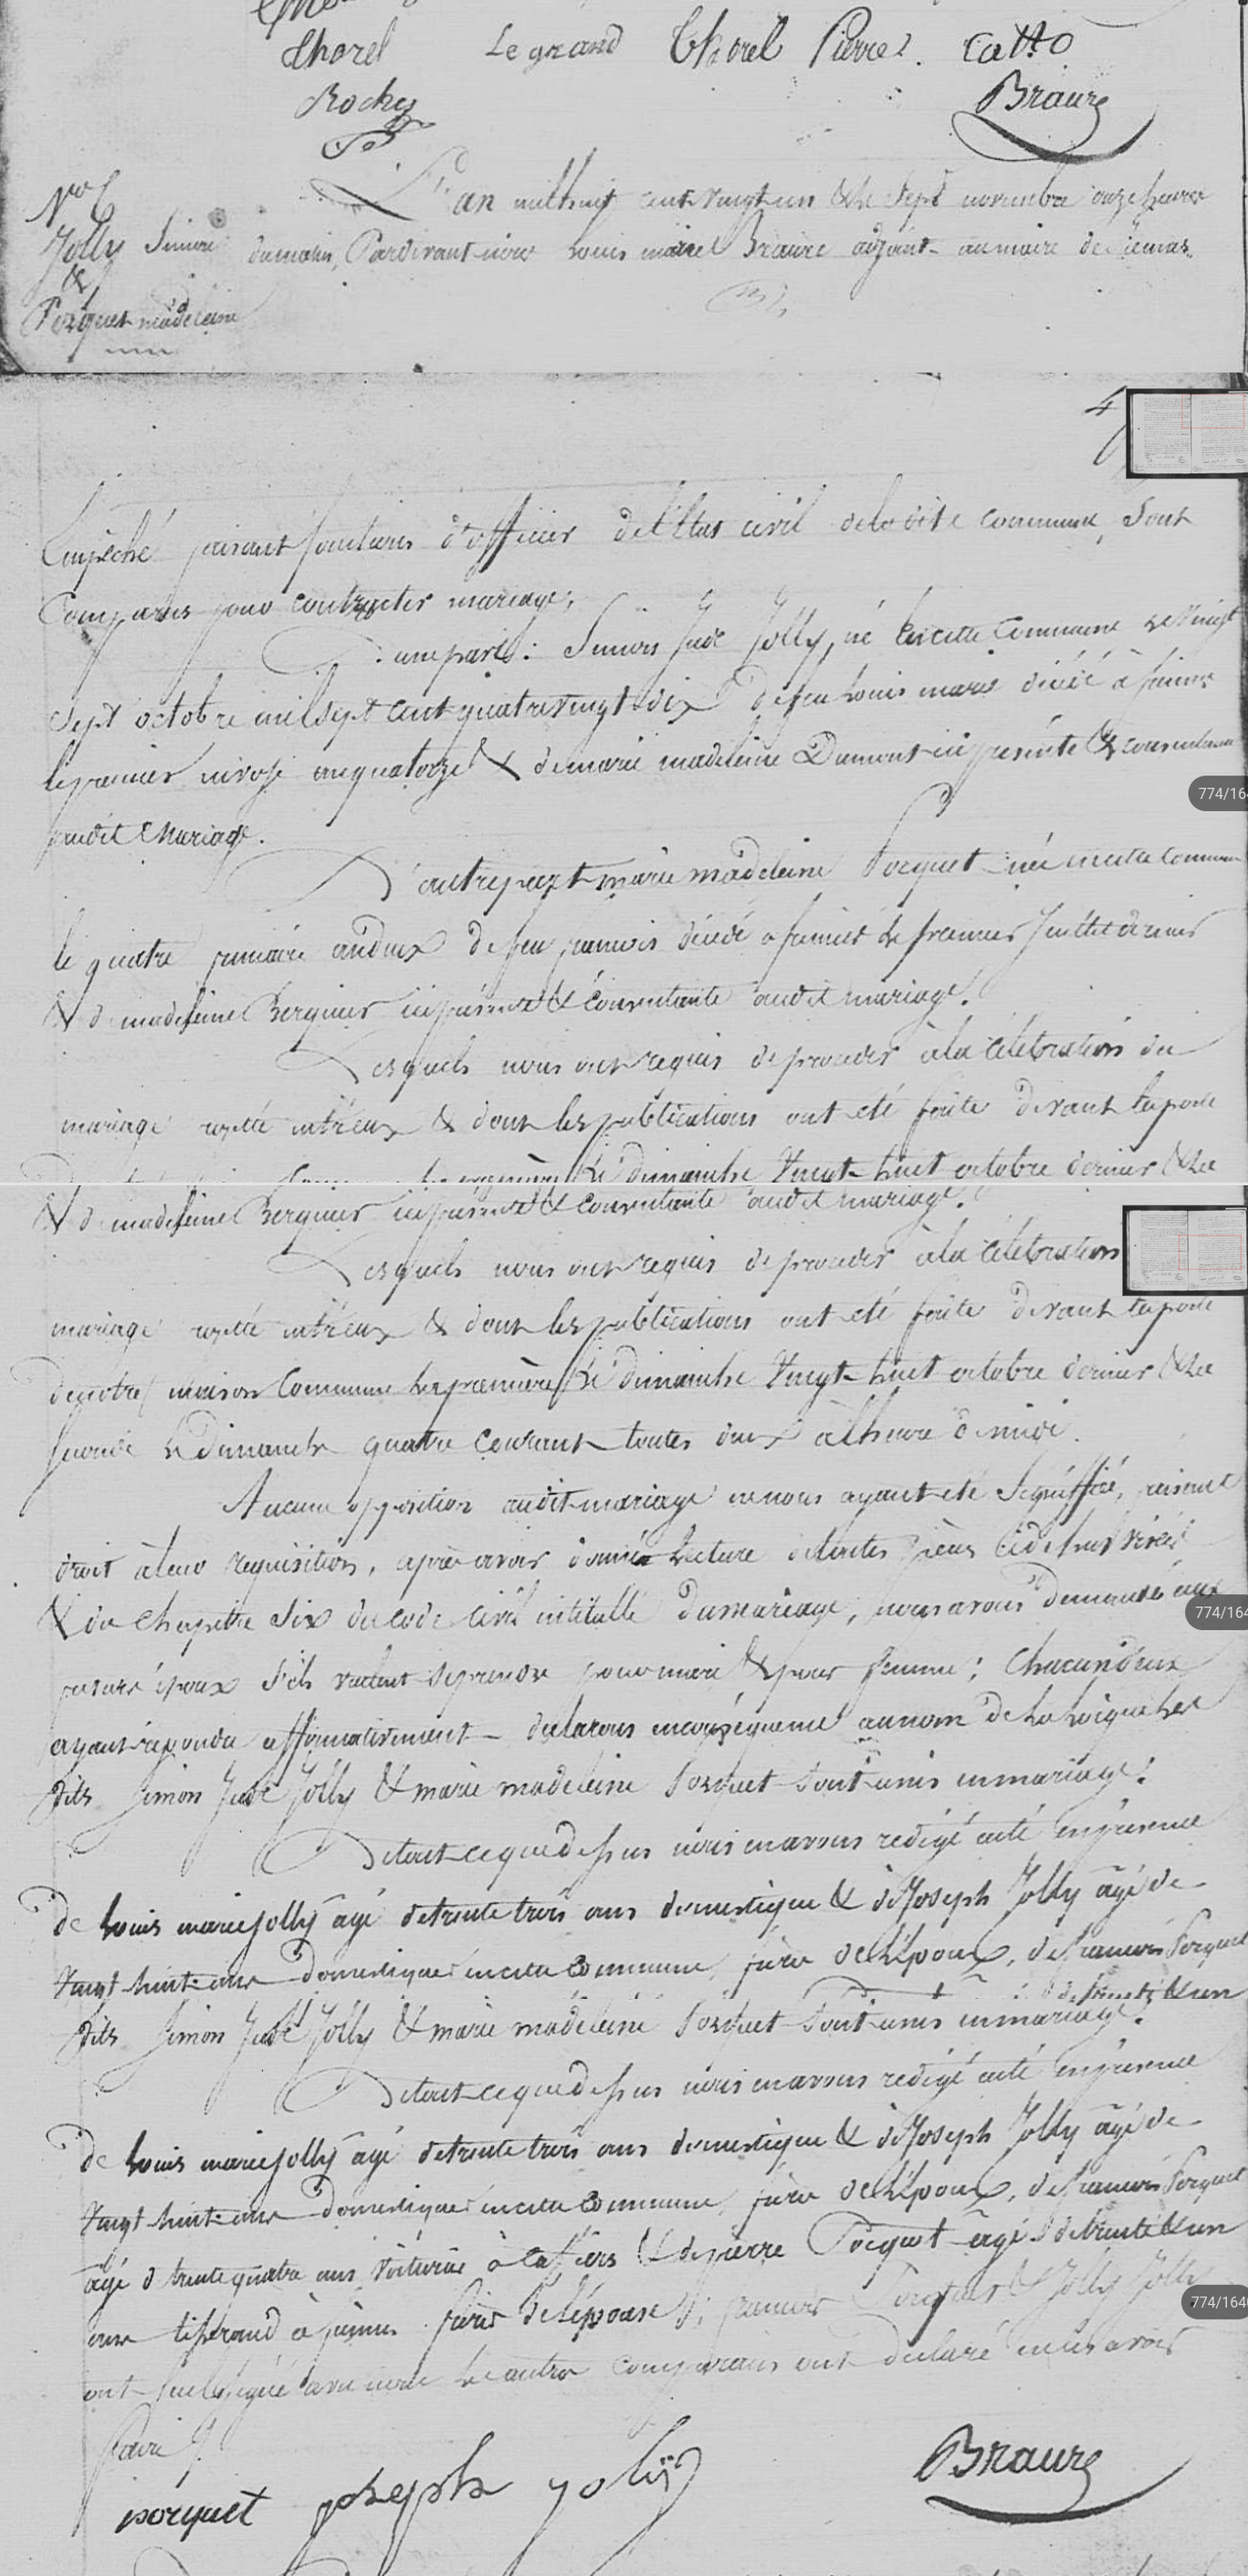 Thorel Le grand Thorel Pierre Catto
Roches Braure
No 6
Jolly Simon
&
Porquet madeleine
L'an mil huit cent vingt un & le sept novembre onze heures
du matin, Pardevant nous Louis marie Braure adjoint au maire de
4
774/164
Empêché faisant fonctions d'officier de l'Etat civil de la dite commune, Sont
Comparus pour contracter mariage,
D'une part: Simon Jude Jolly, né en cette Commune le vingt
Sept octobre mil sept cent quatre vingt dix de feu Louis marie décédé à
le premier nivose an quatorze & de marie madeleine Dumont ici présente & consentante
audit Mariage.
D'autre part marie madeleine Porquet née en cette Commune
le quatre an deux de feu francois décédé a le premier Juillet dernier
& de madeleine Berquier ici présente & consentante audit mariage.
Lesquels nous ont requis de proceder à la célébration du
mariage projetté entr'eux & dont les publications ont été faite devant la porte
le dimanche Vingt-huit octobre dernier & la
& de madeleine Berquier ici présente & consentante audit mariage.
Lesquels nous ont requis de proceder à la célébration
mariage projetté entr'eux & dont les publications ont été faite devant la porte
de notre maison Commune la première le dimanche Vingt-huit octobre dernier & la
seconde le dimanche quatre Courant toutes deux à l'heure de midi.
Aucune opposition audit mariage ne nous ayant été Signiffié, faisant
droit à leur requisition, après avoir donné Lecture de toutes pièces
& du Chapitre Six du code Civil intitulé Du mariage, nous avons Demandé aux
774/164
futurs époux s'ils veulent se prendre pour mari & pour femme; Chacun d'eux
ayant répondu affirmativement - declarons en conséquence au nom de la Loi que les
dits Simon Jude Jolly & marie madeleine Porquet sont unis en mariage.
De tout ce que dessus nous en avons redigé acte en présence
de Louis marie Jolly âgé de trente trois ans domestique & de Joseph Jolly âgé de
Vingt huit ans Domestique en cette Commune, frère de l'époux, de francois Porquet
dits Simon Jude Jolly & marie madeleine Porquet sont unis en mariage.
De tout ce que dessus nous en avons redigé acte en présence
de Louis marie Jolly âgé de trente trois ans domestique & de Joseph Jolly âgé de
Vingt huit ans Domestique en cette Commune, frère de l'époux, de francois Porquet
âgé de trente quatre ans Voiturier à & de pierre Porquet âgé de trente & un
ans tisserand à frères de l'épouse & Jolly Jolly
774/164
ont signé avec nous les autres comparans ont declaré ne le savoir
faire
porquet joseph joliÿ Braure